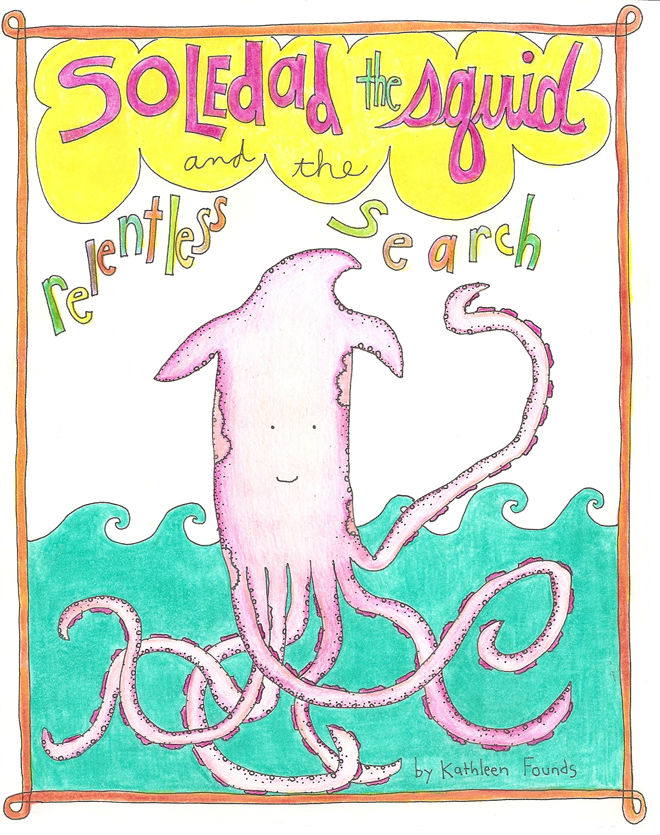 SOLEdad the squid
and the
relentless search
by Kathleen Founds